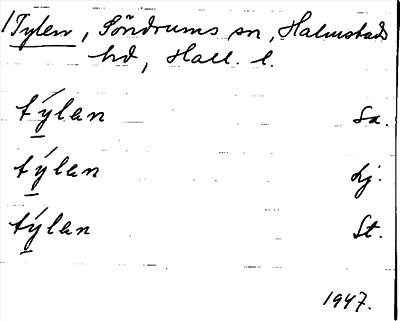 Tylen, Söndrums sn, Halmstads
hd, Hall. l.
týlan Sa.
týlan Lj.
týlan St.
1947.